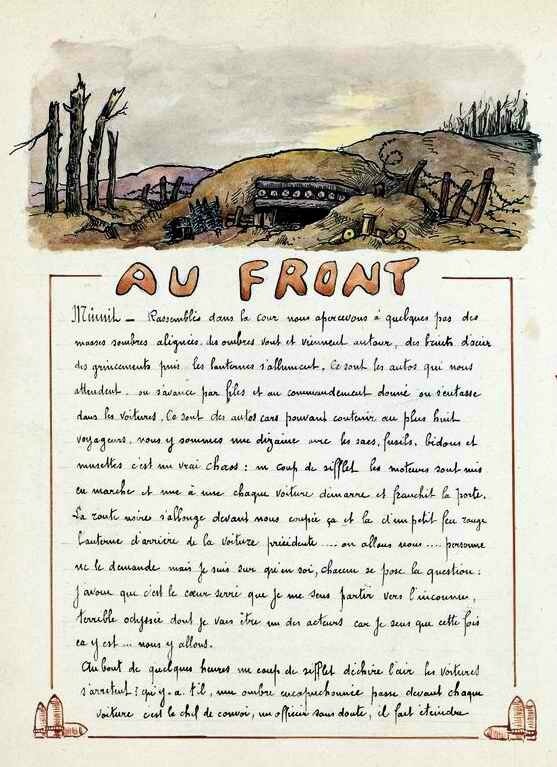 AU FRONT
Minuit — Rassemblés dans la cour nous apercevons à quelques pas des
masses sombres alignées, des ombres vont et viennent autour, des bruits d'acier
des grincements puis les lanternes s'allument. Ce sont les autos qui nous
attendent. on s'avance par files et au commandement donné on s'entasse
dans les voitures. Ce sont des autos cars pouvant contenir au plus huit
voyageurs, nous y sommes une dizaine avec les sacs, fusils, bidons et
musettes c'est un vrai chaos : un coup de sifflet les moteurs sont mis
en marche et une à une chaque voiture démarre et franchit la porte.
La route noire s'allonge devant nous coupée ça et là d'un petit feu rouge
lanterne d'arrière de la voiture précédente .... où allons nous .... personne
ne le demande mais je suis sur qu'en soi, chacun se pose la question :
j'avoue que c'est le cœur serré que je me sens partir vers l'inconnu,
terrible odyssée dont je vais être un des acteurs car je sens que cette fois
ça y est ... nous y allons.
Au bout de quelques heures un coup de sifflet déchire l'air les voitures
s'arrêtent ? qu'y-a-t'il, une ombre encapuchonnée passe devant chaque
voiture c'est le chef de convoi, un officier sans doute, il fait éteindre